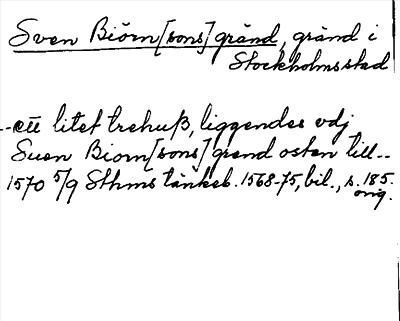 Sven Biörn[sons] gränd, gränd i
Stockholms stad
--ett litet trehuß, liggendes vdj
Suen Biorn[sons] grend osten till--
1570 5/9 Sthms tänkeb. 1568-75, bil., s. 185.
orig.